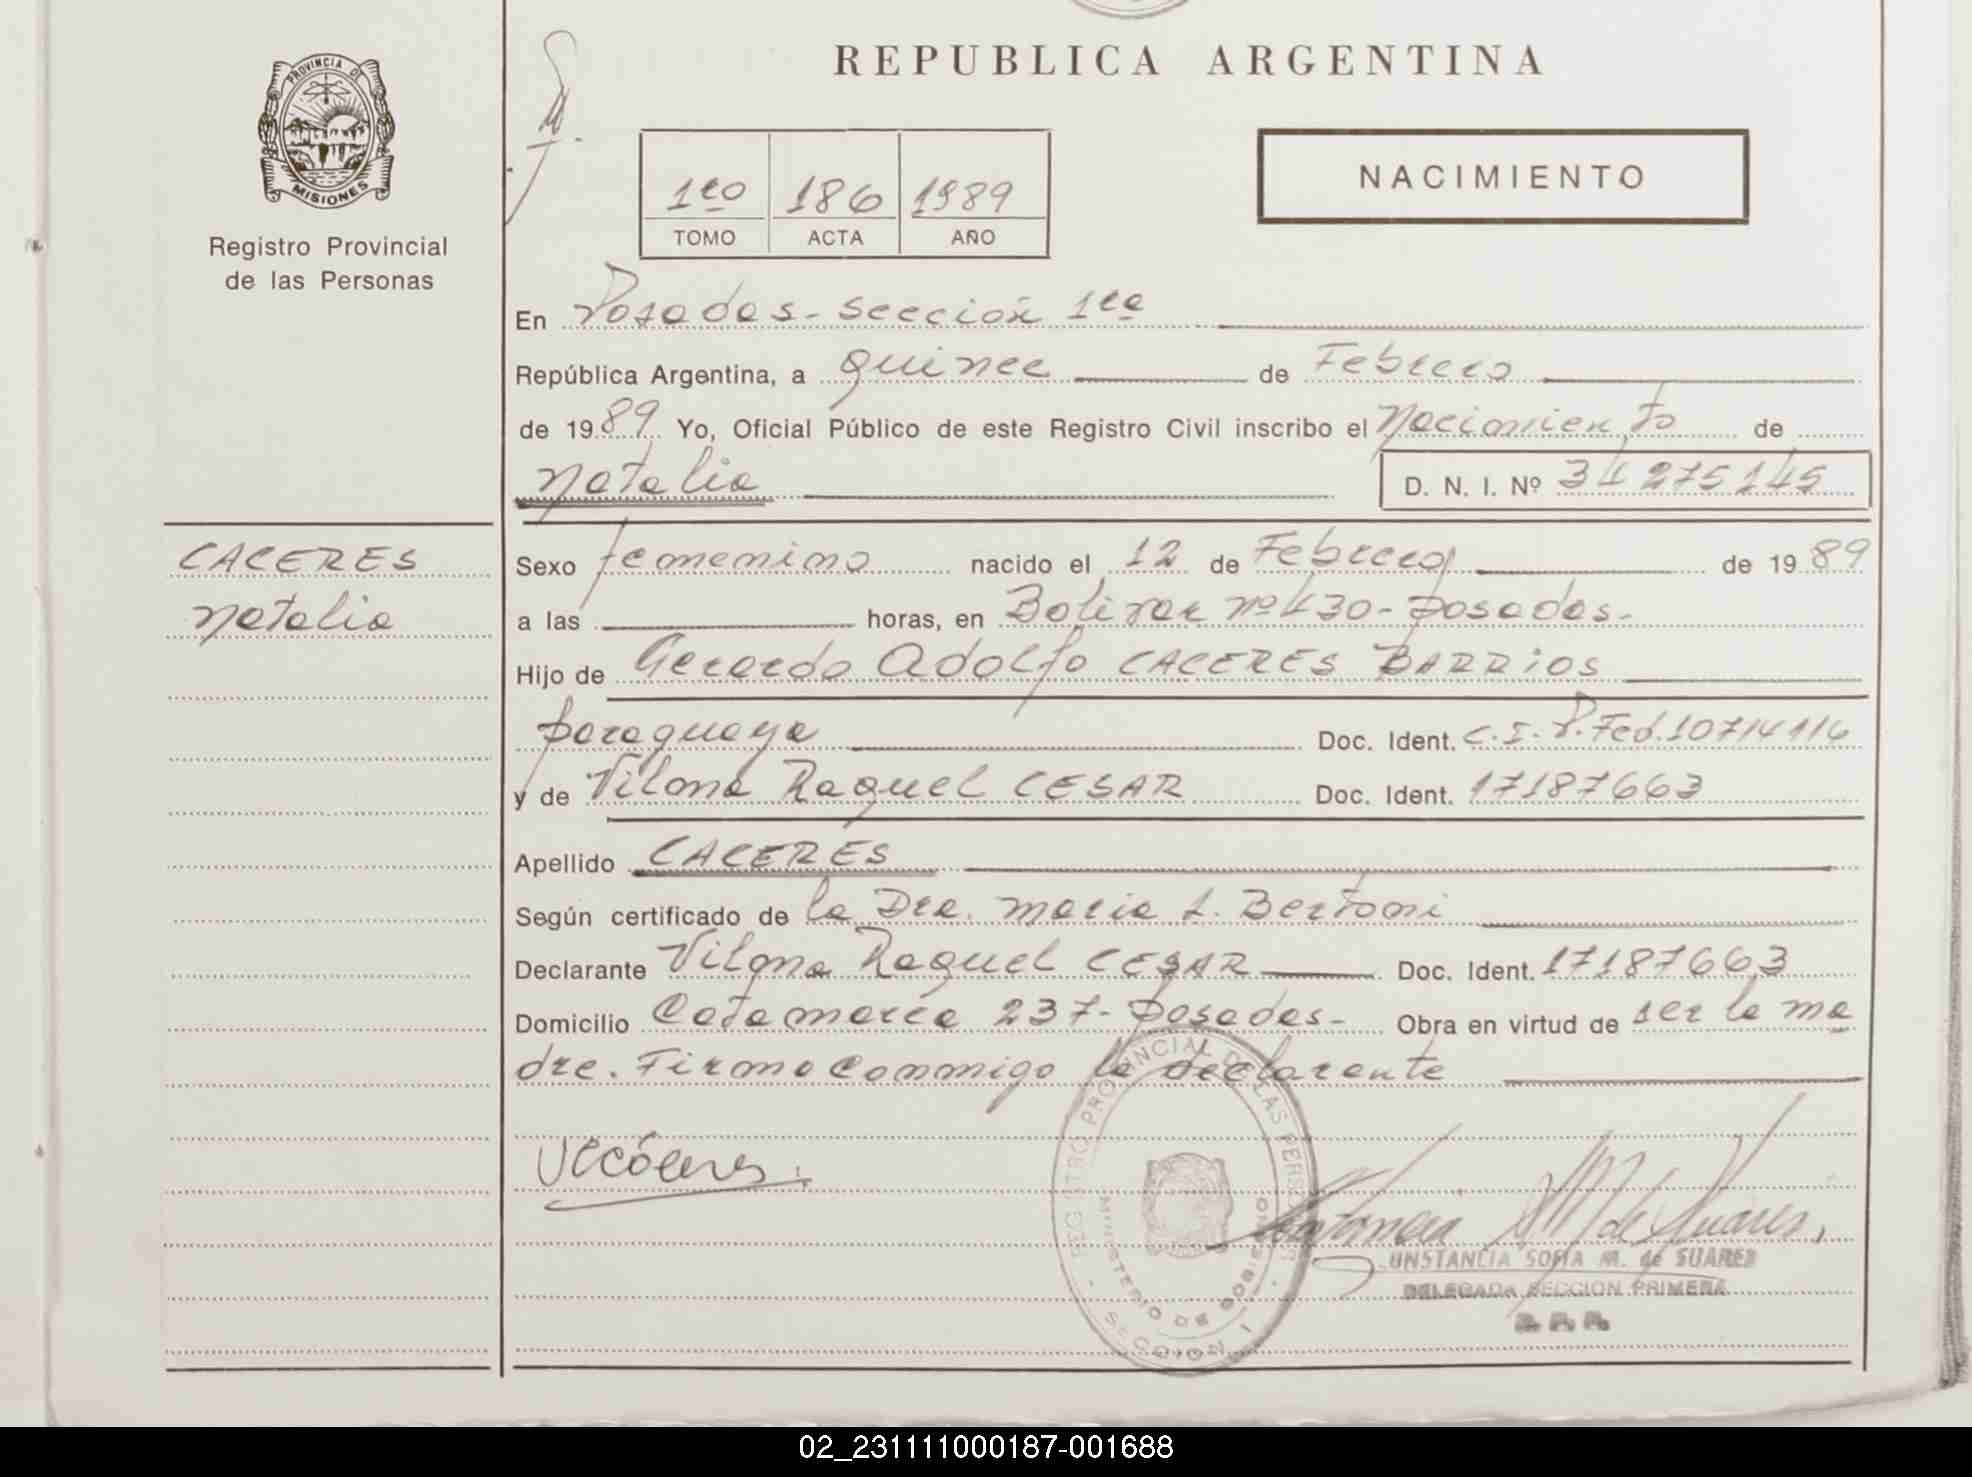 PROVINCIA DE
MISIONES
Registro Provincial
de las Personas
CACERES
Natalia
REPUBLICA ARGENTINA
1ro 186 1989
TOMO ACTA AÑO
NACIMIENTO
En Posadas - Sección 1ra
República Argentina, a quince de Febrero
de 1989 Yo, Oficial Público de este Registro Civil inscribo el Nacimiento de
Natalia D. N. I. Nº 34275145
Sexo femenino nacido el 12 de Febrero de 1989
a las horas, en Bolivar nº 430 - Posadas -
Hijo de Gerardo Adolfo CACERES BARRIOS
paraguaya Doc. Ident. C.I. P. Fed. 10714116
y de Vilma Raquel CESAR Doc. Ident. 17187663
Apellido CACERES
Según certificado de la Dra. Maria L. Bertoni
Declarante Vilma Raquel CESAR Doc. Ident. 17187663
Domicilio Catamarca 237 - Posadas - Obra en virtud de ser la ma
dre. Firma conmigo la declarante
REGISTRO PROVINCIAL DE LAS PERSONAS
MINISTERIO DE GOBIERNO
- SECCION I -
M de Suarez
SOFIA M. de SUAREZ
DELEGADA SECCION PRIMERA
02_231111000187-001688